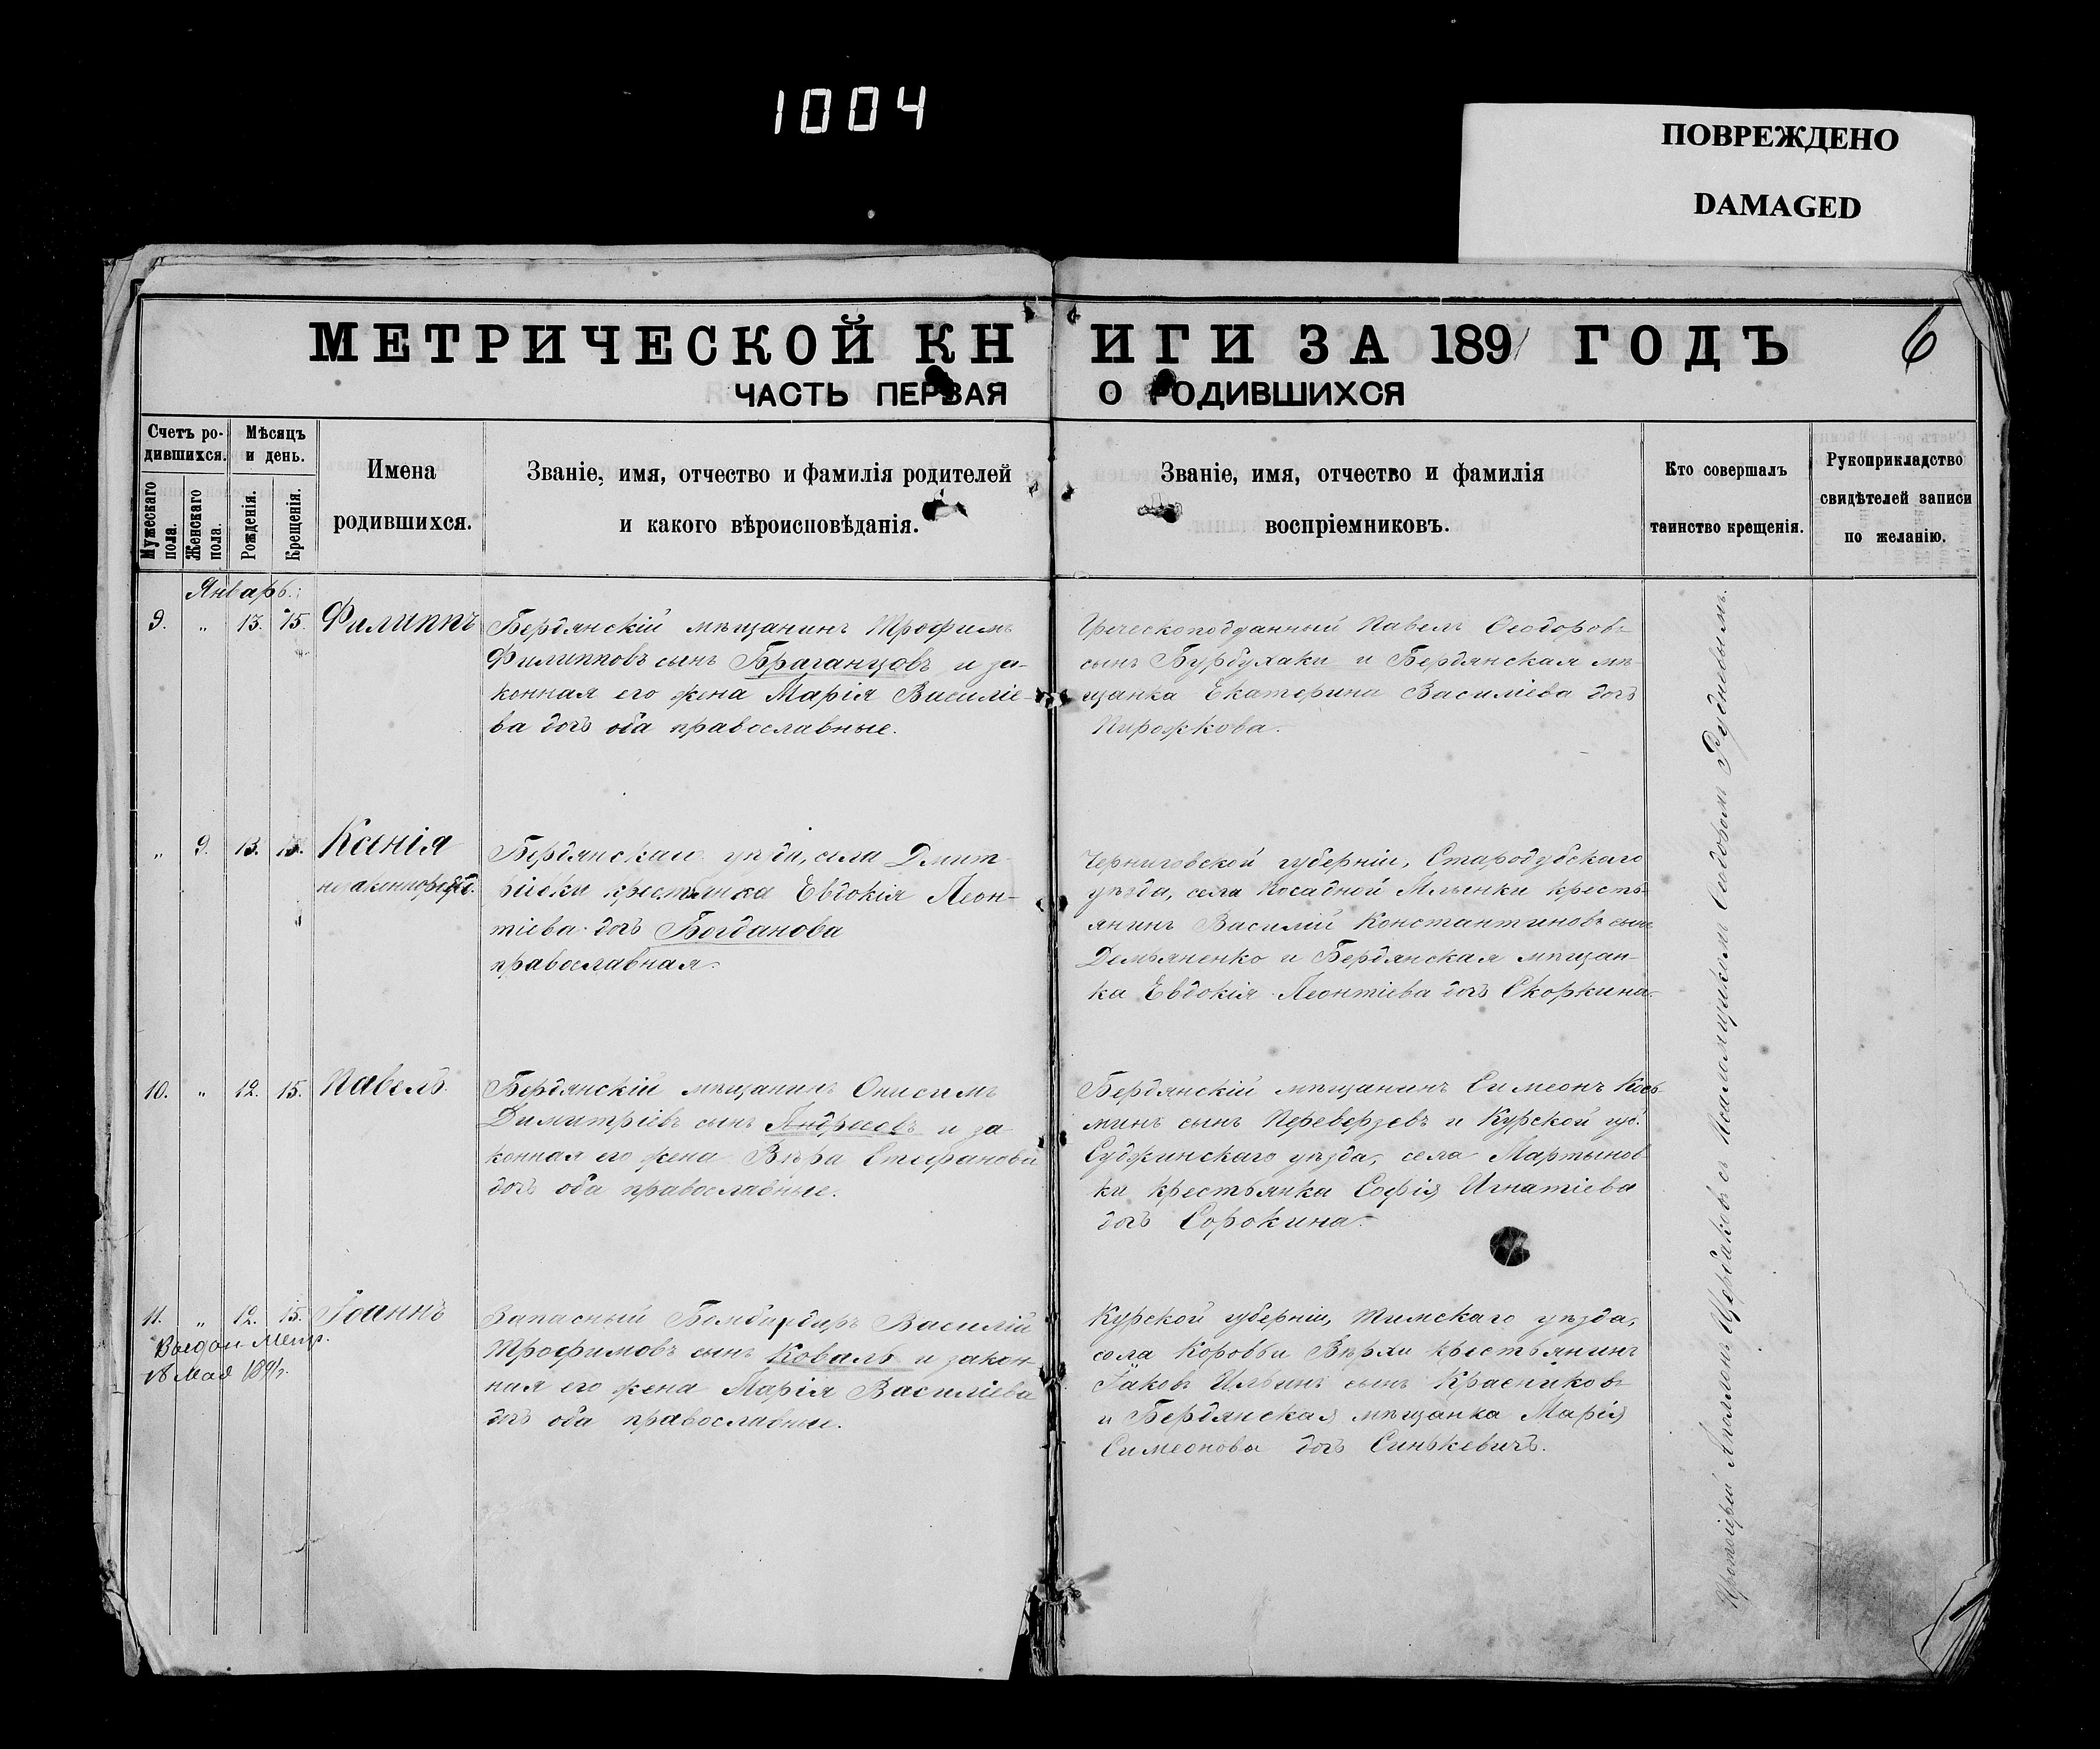 1004
ПОВРЕЖДЕНО
DAMAGED
МЕТРИЧЕСКОЙ КНИГИ ЗА 1891 ГОДЪ
6
ЧАСТЬ ПЕРВАЯ О РОДИВШИХСЯ
Счетъ родившихся.
Мужескаго пола.
Женскаго пола.
Мѣсяцъ и день.
Рожденія.
Крещенія.
Имена
родившихся.
Званіе, имя, отчество и фамилія родителей
и какого вѣроисповѣданія.
Званіе, имя, отчество и фамилія
воспріемниковъ.
Кто совершалъ
таинство крещенія.
Рукоприкладство
свидѣтелей записи
по желанію.
Январь.
9. „ 13. 15. Филиппъ
Бердянскій мѣщанинъ Трофимъ
Филипповъ сынъ Браганцовъ и за-
конная его жена Марія Василіе-
ва дочь оба православные.
Греческоподданный Павелъ Ѳеодоровъ
сынъ Бурдулаки и Бердянская мѣ-
щанка Екатерина Василіева дочь
Пирожкова.
„ 9. 13. 15. Ксенія
незаконнорожд.
Бердянскаго уѣзда, села Дмит-
ріевки крестьянка Евдокія Леон-
тіева дочь Богданова
православная.
Черниговской губерніи, Стародубскаго
уѣзда, села Посадной Млынки кресть-
янинъ Василій Константиновъ сынъ
Демьяненко и Бердянская мѣщан-
ка Евдокія Леонтіева дочь Скоркина.
10. „ 12. 15. Павелъ
Бердянскій мѣщанинъ Онисимъ
Димитріевъ сынъ Андреевъ и за-
конная его жена Вѣра Стефанова
дочь оба православные.
Бердянскій мѣщанинъ Симеонъ Козь-
минъ сынъ Переверзевъ и Курской губ.
Суджинскаго уѣзда, села Мартынов-
ки крестьянка Софія Игнатіева
дочь Сорокина.
11. „ 12. 15. Іоаннъ
18 Мая
Запасный Бомбардиръ Василій
Трофимовъ сынъ Коваль и закон-
ная его жена Марія Василіева
дочь оба православные.
Курской губерніи, Тимскаго уѣзда,
села Коровьи Верхи крестьянинъ
Іаковъ Ильинъ сынъ Красниковъ
и Бердянская мѣщанка Марія
Симеонова дочь Синькевичъ.
Протоіерей Щербаковъ съ Псаломщикомъ Ѳеодоромъ Рудневымъ.